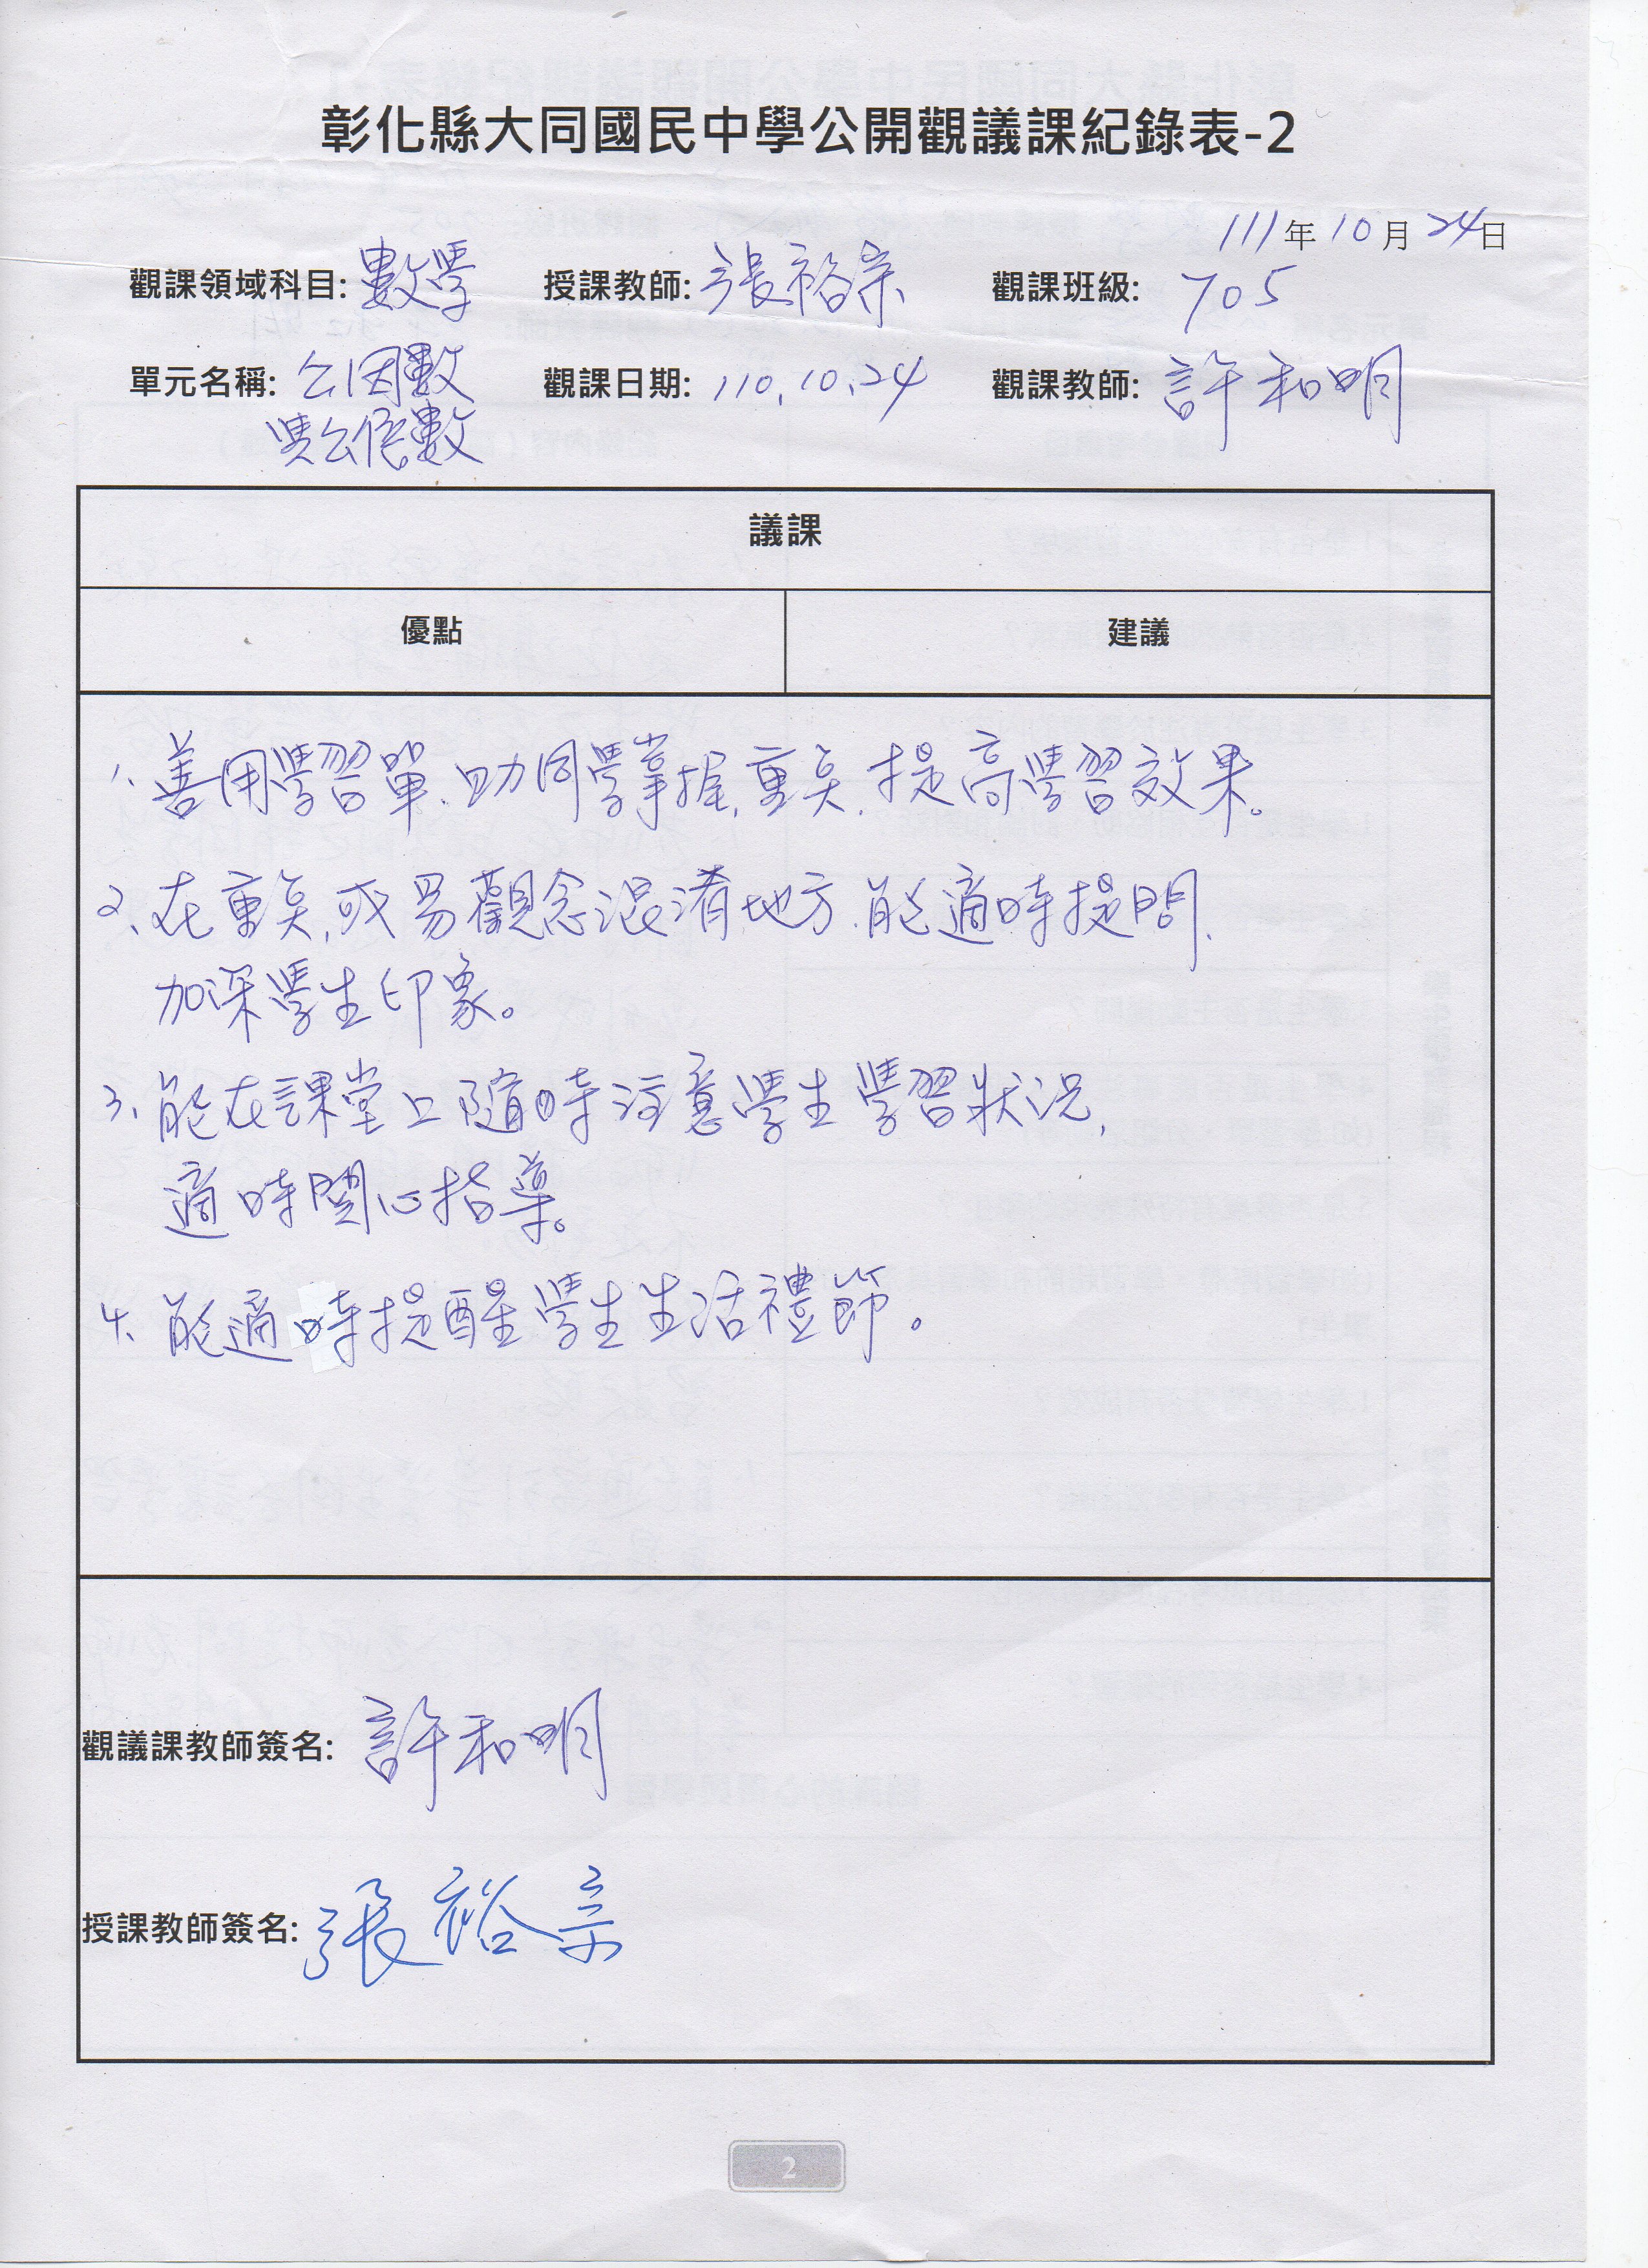 彰化縣大同國民中學公開觀議課紀錄表-2
111年10月24日
觀課領域科目:數學 授課教師:張裕宗 觀課班級:705
單元名稱:公因數 觀課日期:110.10.24 觀課教師:許和明
與公倍數
議課
優點 建議
1.善用學習單.助同學掌握重点.提高學習效果。
2、在重点或易觀念混淆地方.能適時提問.
加深學生印象。
3、能在課堂上隨時注意學生學習狀況,
適時関心指導。
4、能適時提醒學生生活禮節。
觀議課教師簽名:許和明
授課教師簽名:張裕宗
2